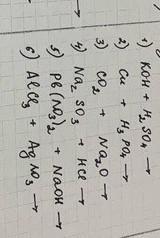 1) KOH + H₂SO₄ →
2) Cu + H₃PO₄ →
3) CO₂ + Na₂O →
4) Na₂SO₃ + HCl →
5) Pb(NO₃)₂ + NaOH →
6) AlCl₃ + AgNO₃ →